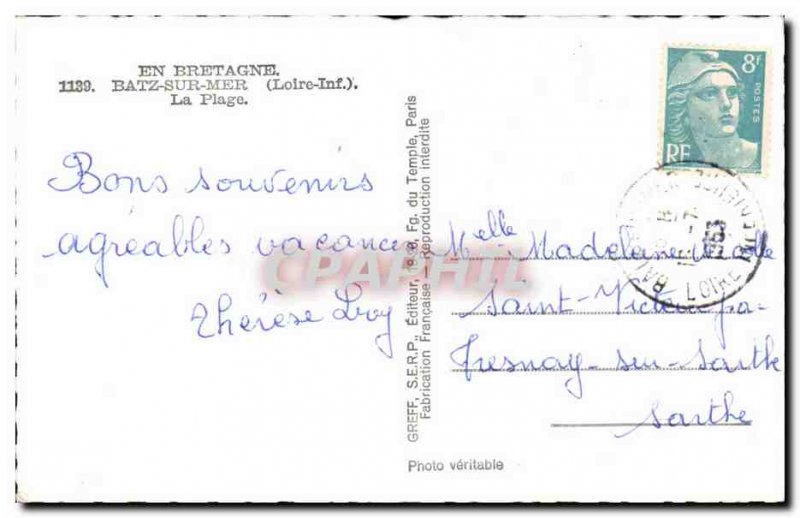 EN BRETAGNE.
1139. BATZ-SUR-MER (Loire-Inf.).
La Plage.
Bons souvenirs
agréables vacances
Thérèse
GREFF, S.E.R.P., Éditeur, Fg. du Temple, Paris
Fabrication Française Reproduction interdite
Photo véritable
8f
POSTES
RF
1953
LOIRE
CPAPHIL
Melle Madeleine
Saint-
Fresnay-sur-Sarthe
Sarthe